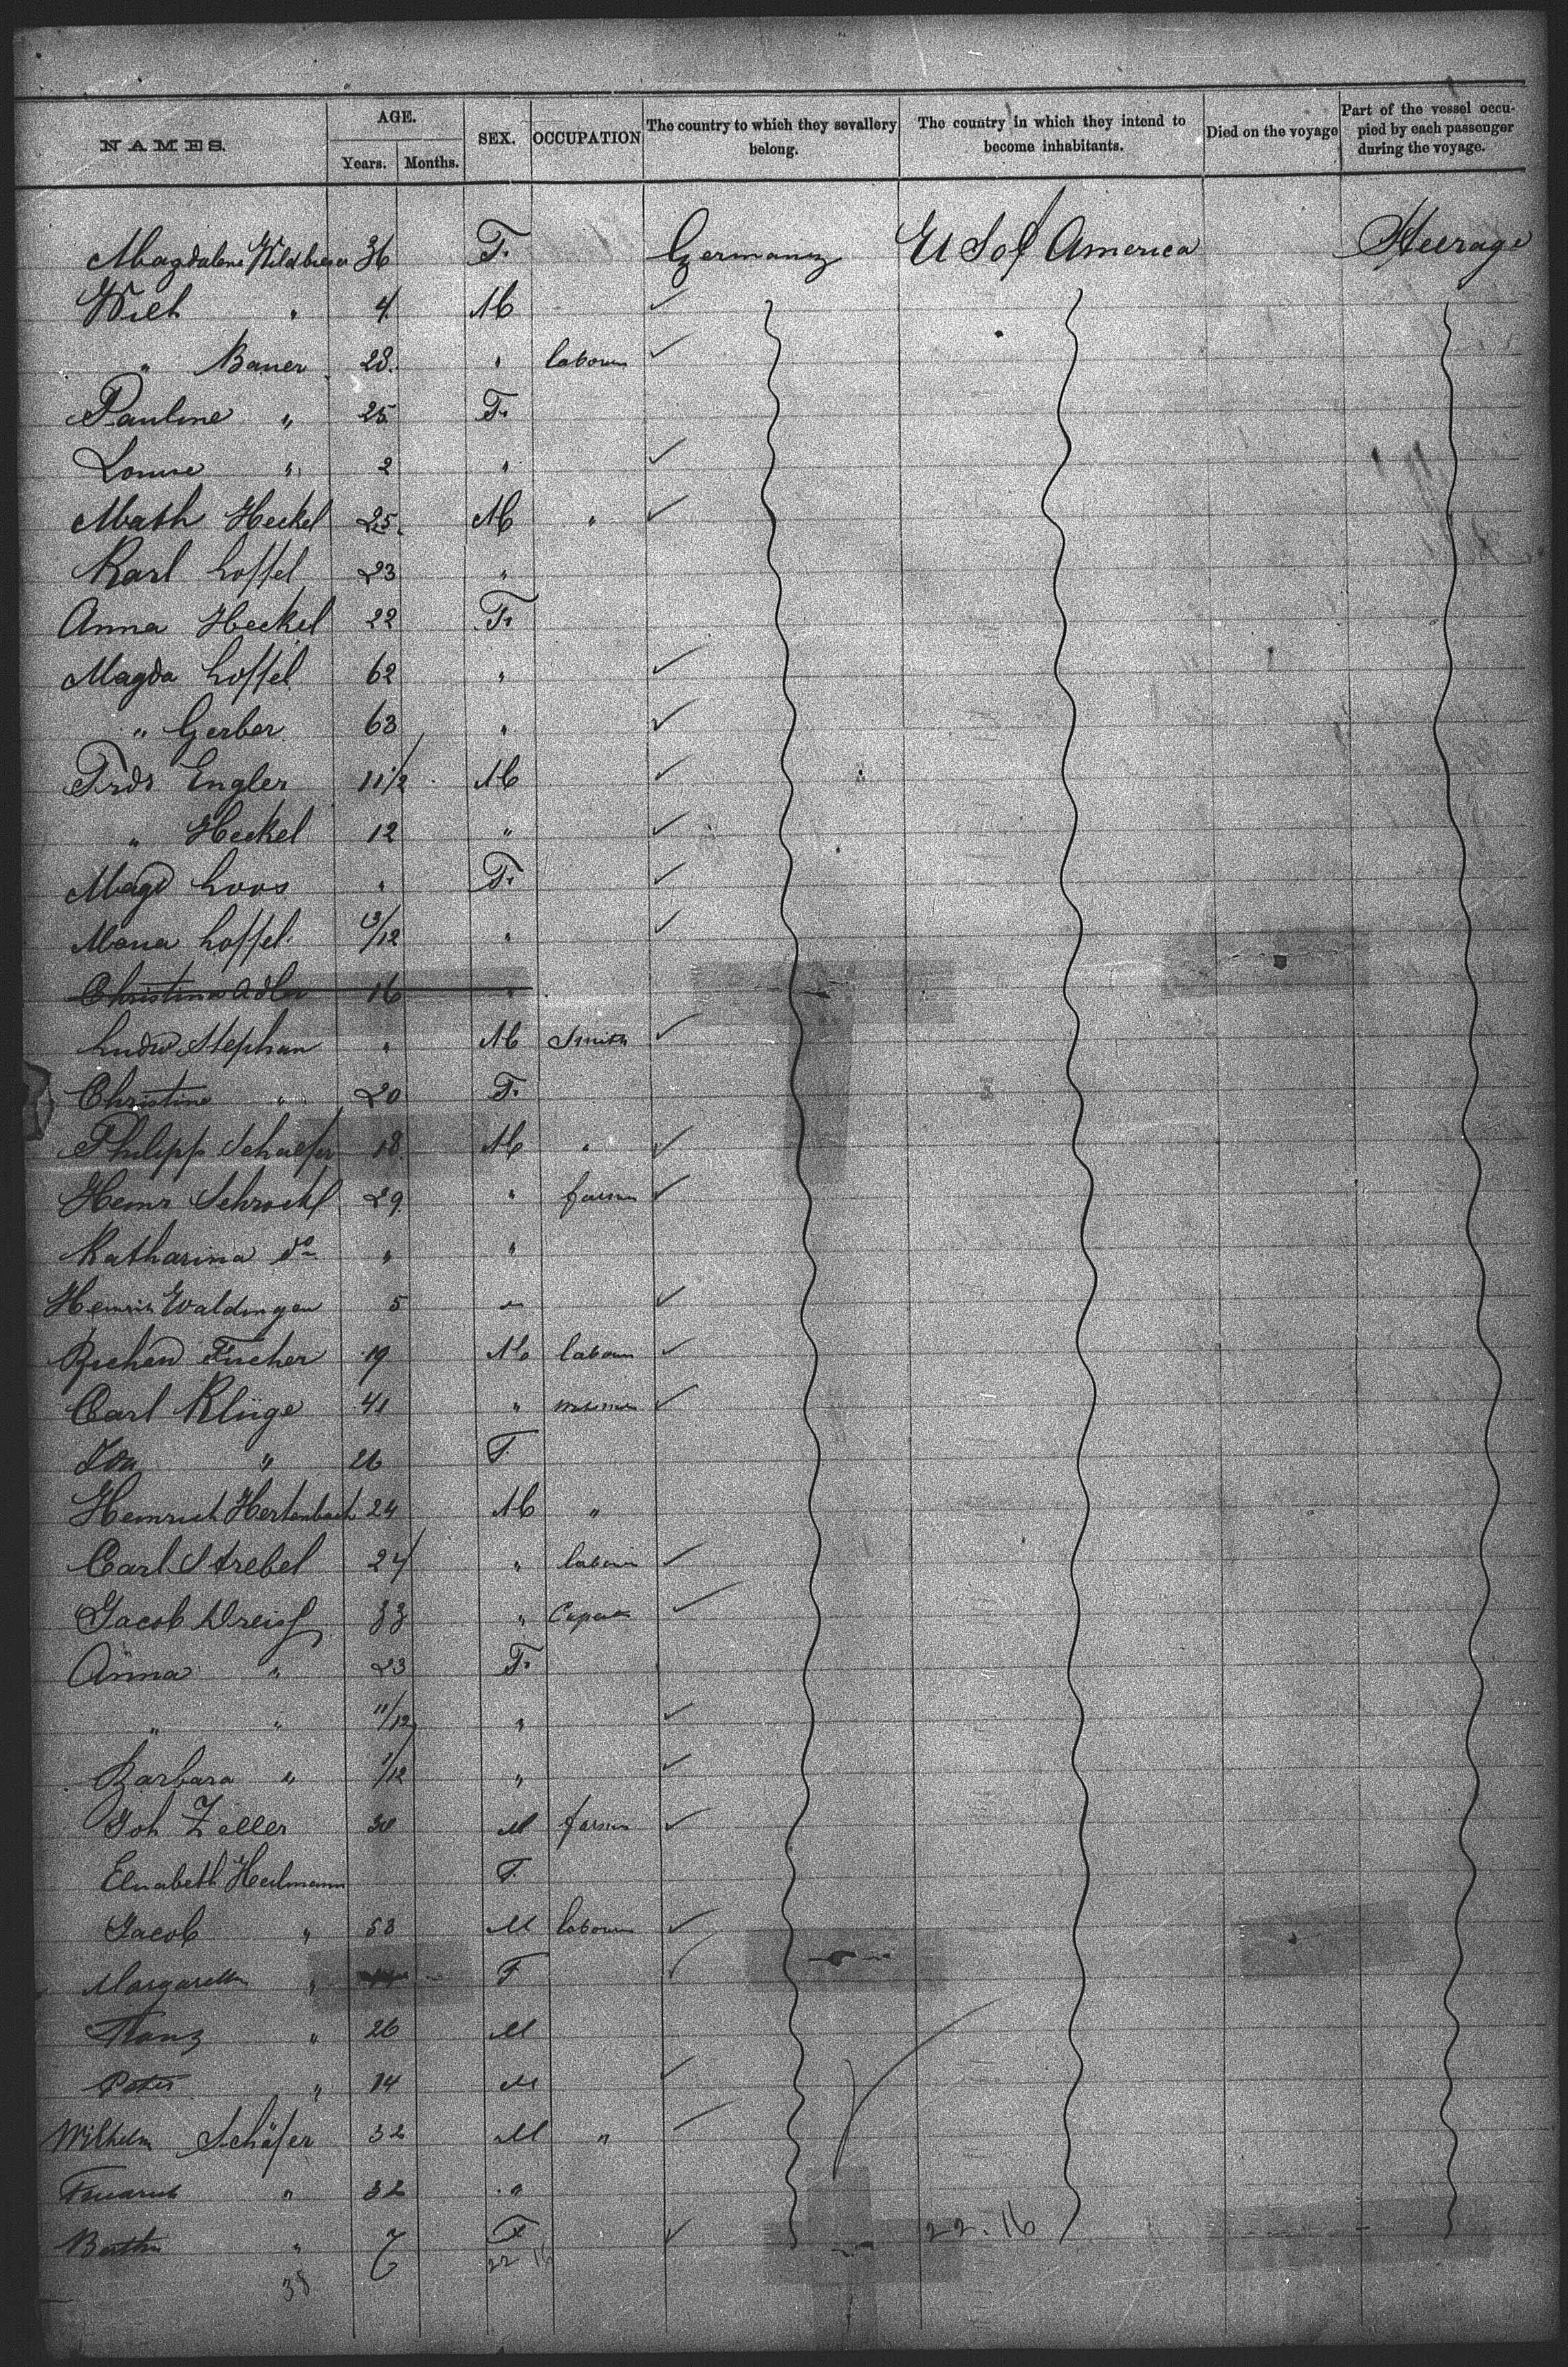 NAMES.
AGE.
Years. Months.
SEX.
OCCUPATION
The country to which they severallery belong.
The country in which they intend to become inhabitants.
Died on the voyage
Part of the vessel occupied by each passenger during the voyage.
Magdalena 36 F. Germany U S of America Steerage
Wilh " 4 M
" Bauer 28. " labourer
Pauline " 25 F.
Louise " 2 "
Math Heckel 25. M "
Karl Loffel 23 "
Anna Heckel 22 F.
Magda Loffel 62 "
" Gerber 63 "
Frdr Engler 11 1/2 M
" Heckel 12 "
Magd Loos " F.
Maria Loffel /12 "
Christine Adler 16 "
Ludw Stephan " M Smith
Christine " 20 F.
Philipp Schaefer 18 M "
Heinr 29 " farmer
Katharina do " "
Heinrich 5 "
Richard Fischer 19 M labourer
Carl Klüge 41 "
Ida " 26 F.
Heinrich Hertenbach 24 M "
Carl Strebel 24 " labourer
Jacob Dreiss 33 "
Anna " 23 F.
" " 11/12 "
Barbara " 1/12 "
Joh Zeller 30 M farmer
Elisabeth Heilmann F.
Jacob " 53 M labourer
Margaretha " F
Franz " 26 M
Peter " 14 M
Wilhelm Schäfer 32 M "
Friedrich " 32 "
Bertha " 7 F
38 22 16 22.16